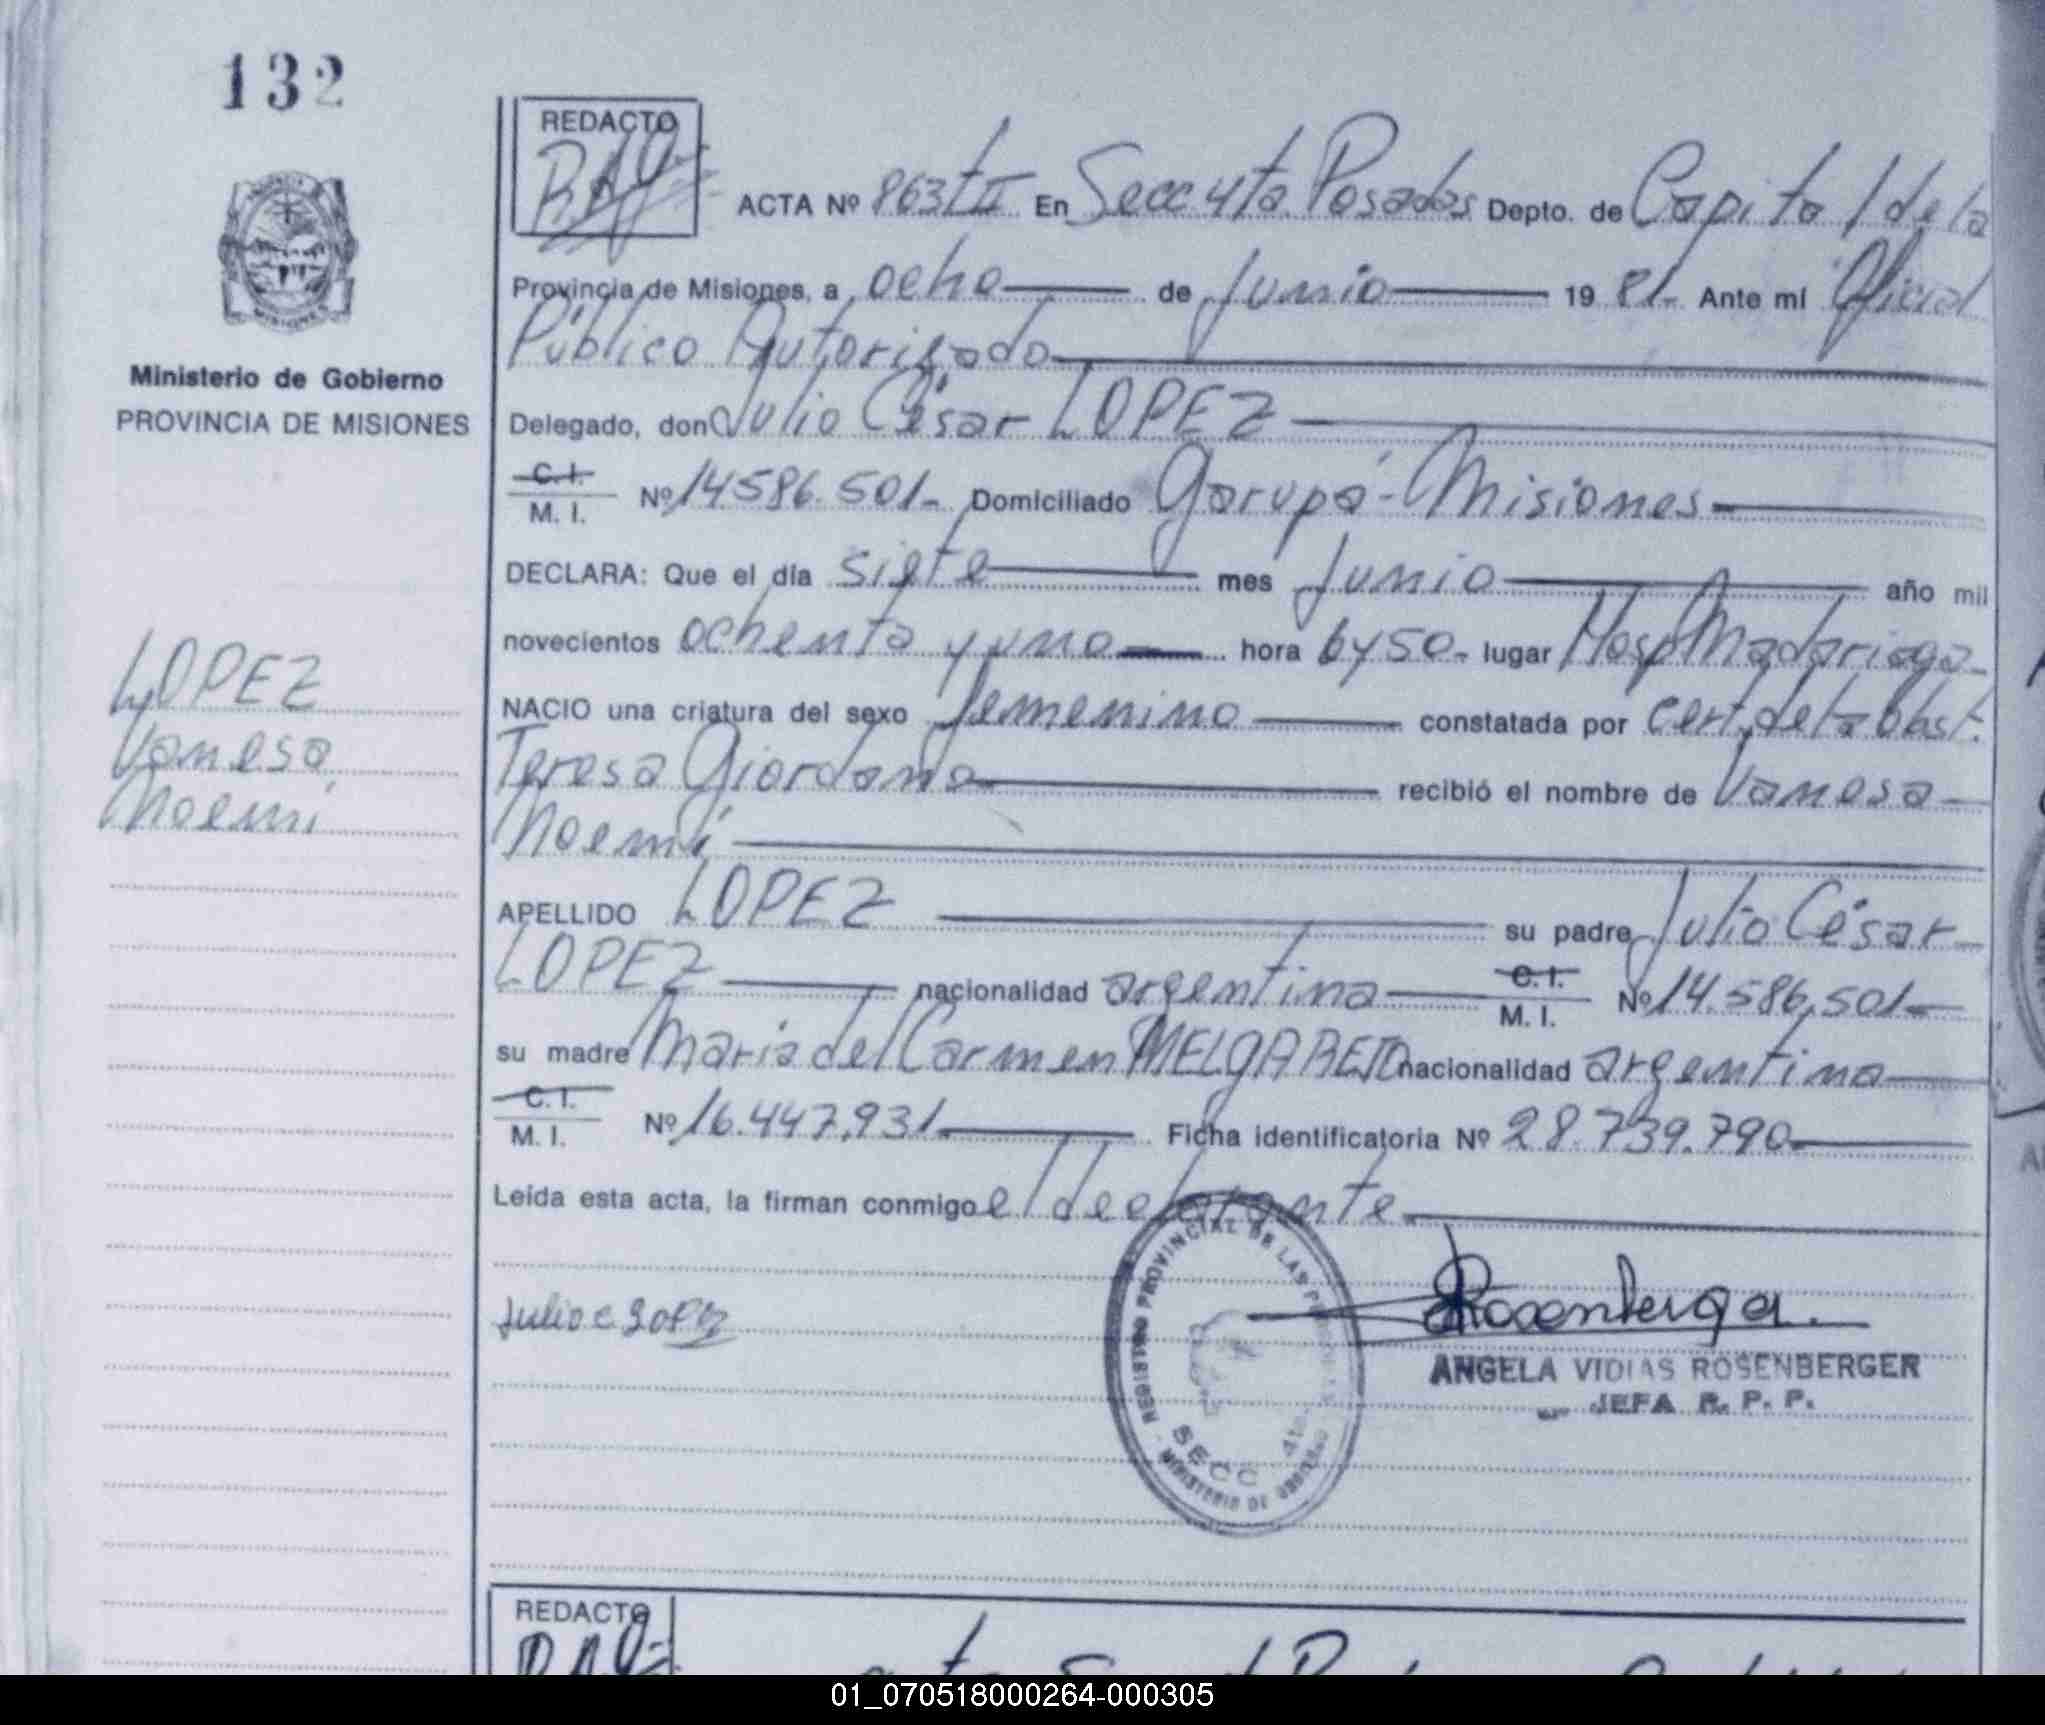 132
Ministerio de Gobierno
PROVINCIA DE MISIONES
LOPEZ
Vanesa
Noemi
REDACTO
ACTA Nº 863 t II En Secc 4ta Posadas Depto. de Capital de la
Provincia de Misiones, a ocho de Junio 1981- Ante mí Oficial
Público Autorizado
Delegado, don Julio César LOPEZ
C.I. M. I. Nº 14.586.501- Domiciliado Garupá - Misiones
DECLARA: Que el día siete mes Junio año mil
novecientos ochenta y uno hora 6 y 50- lugar Hosp Madariaga
NACIO una criatura del sexo femenino constatada por cert. de la Obst.
Teresa Giordano recibió el nombre de Vanesa
Noemí
APELLIDO LOPEZ su padre Julio César
LOPEZ nacionalidad argentina C.I. M. I. Nº 14.586.501-
su madre Maria del Carmen MELGAREJO nacionalidad argentina
C.I. M. I. Nº 16.447.931 Ficha identificatoria Nº 28.739.790
Leída esta acta, la firman conmigo el declarante.
Julio C Lopez
Rosenberger
ANGELA VIDIAS ROSENBERGER
JEFA R. P. P.
REGISTRO PROVINCIAL DE LAS
SECC 4ta.
MINISTERIO DE GOBIERNO
REDACTO
01_070518000264-000305